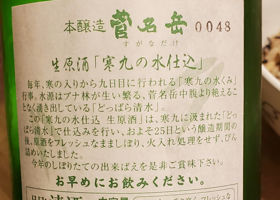 本醸造 菅名岳 0048
すがなだけ
生原酒「寒九の水仕込」
毎年、寒の入りから九日目に行われる「寒九の水くみ」
行事。水源はブナ林が生い繁る、菅名岳中腹より絶えるこ
となく湧き出している「どっぱら清水」。
この「寒九の水仕込 生原酒」は、寒九に汲まれた「どっ
ぱら清水」で仕込みを行い、およそ25日という醸造期間の
後、原酒をフレッシュなまましぼり、火入れ処理をせず、びん
詰めいたしました。
今年のしぼりたての出来ばえを是非ご賞味下さい。
お早めにお飲みください。